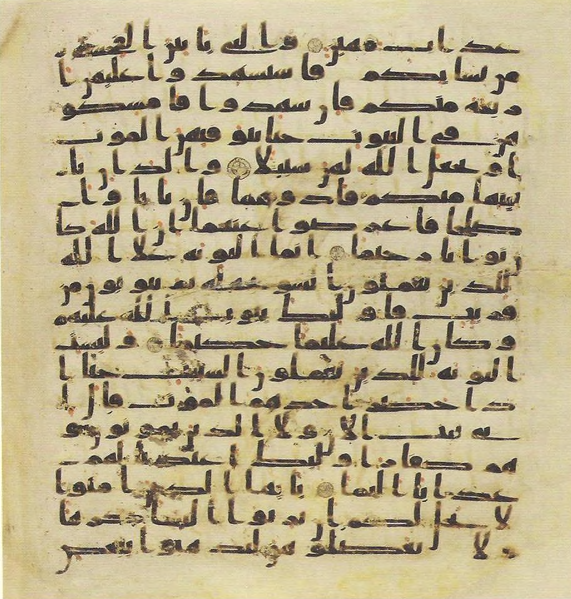 عذاب مهين والتي ياتين الفحشة
من نسايكم فاستشهدوا عليهن ا
ربعة منكم فان شهدوا فامسكو
هن في البيوت حتى يتوفيهن الموت
او يجعل الله لهن سبيلا والذان يا
تينها منكم فاذوهما فان تابا وا
صلحا فاعرضوا عنهما ان الله كا
ن توابا رحيما انما التوبة على الله
للذين يعملون السو بجهلة ثم يتوبون من
قريب فاوليك يتوب الله عليهم
وكان الله عليما حكيما وليست
التوبة للذين يعملون السيات حتى ا
ذا حضر احدهم الموت قال ا
ني تبت الان ولا الذين يموتون و
هم كفار اوليك اعتدنا لهم
عذابا اليما يايها الذين امنوا
لا يحل لكم ان ترثوا النسا كرها
ولا تعضلوهن لتذهبوا ببعض